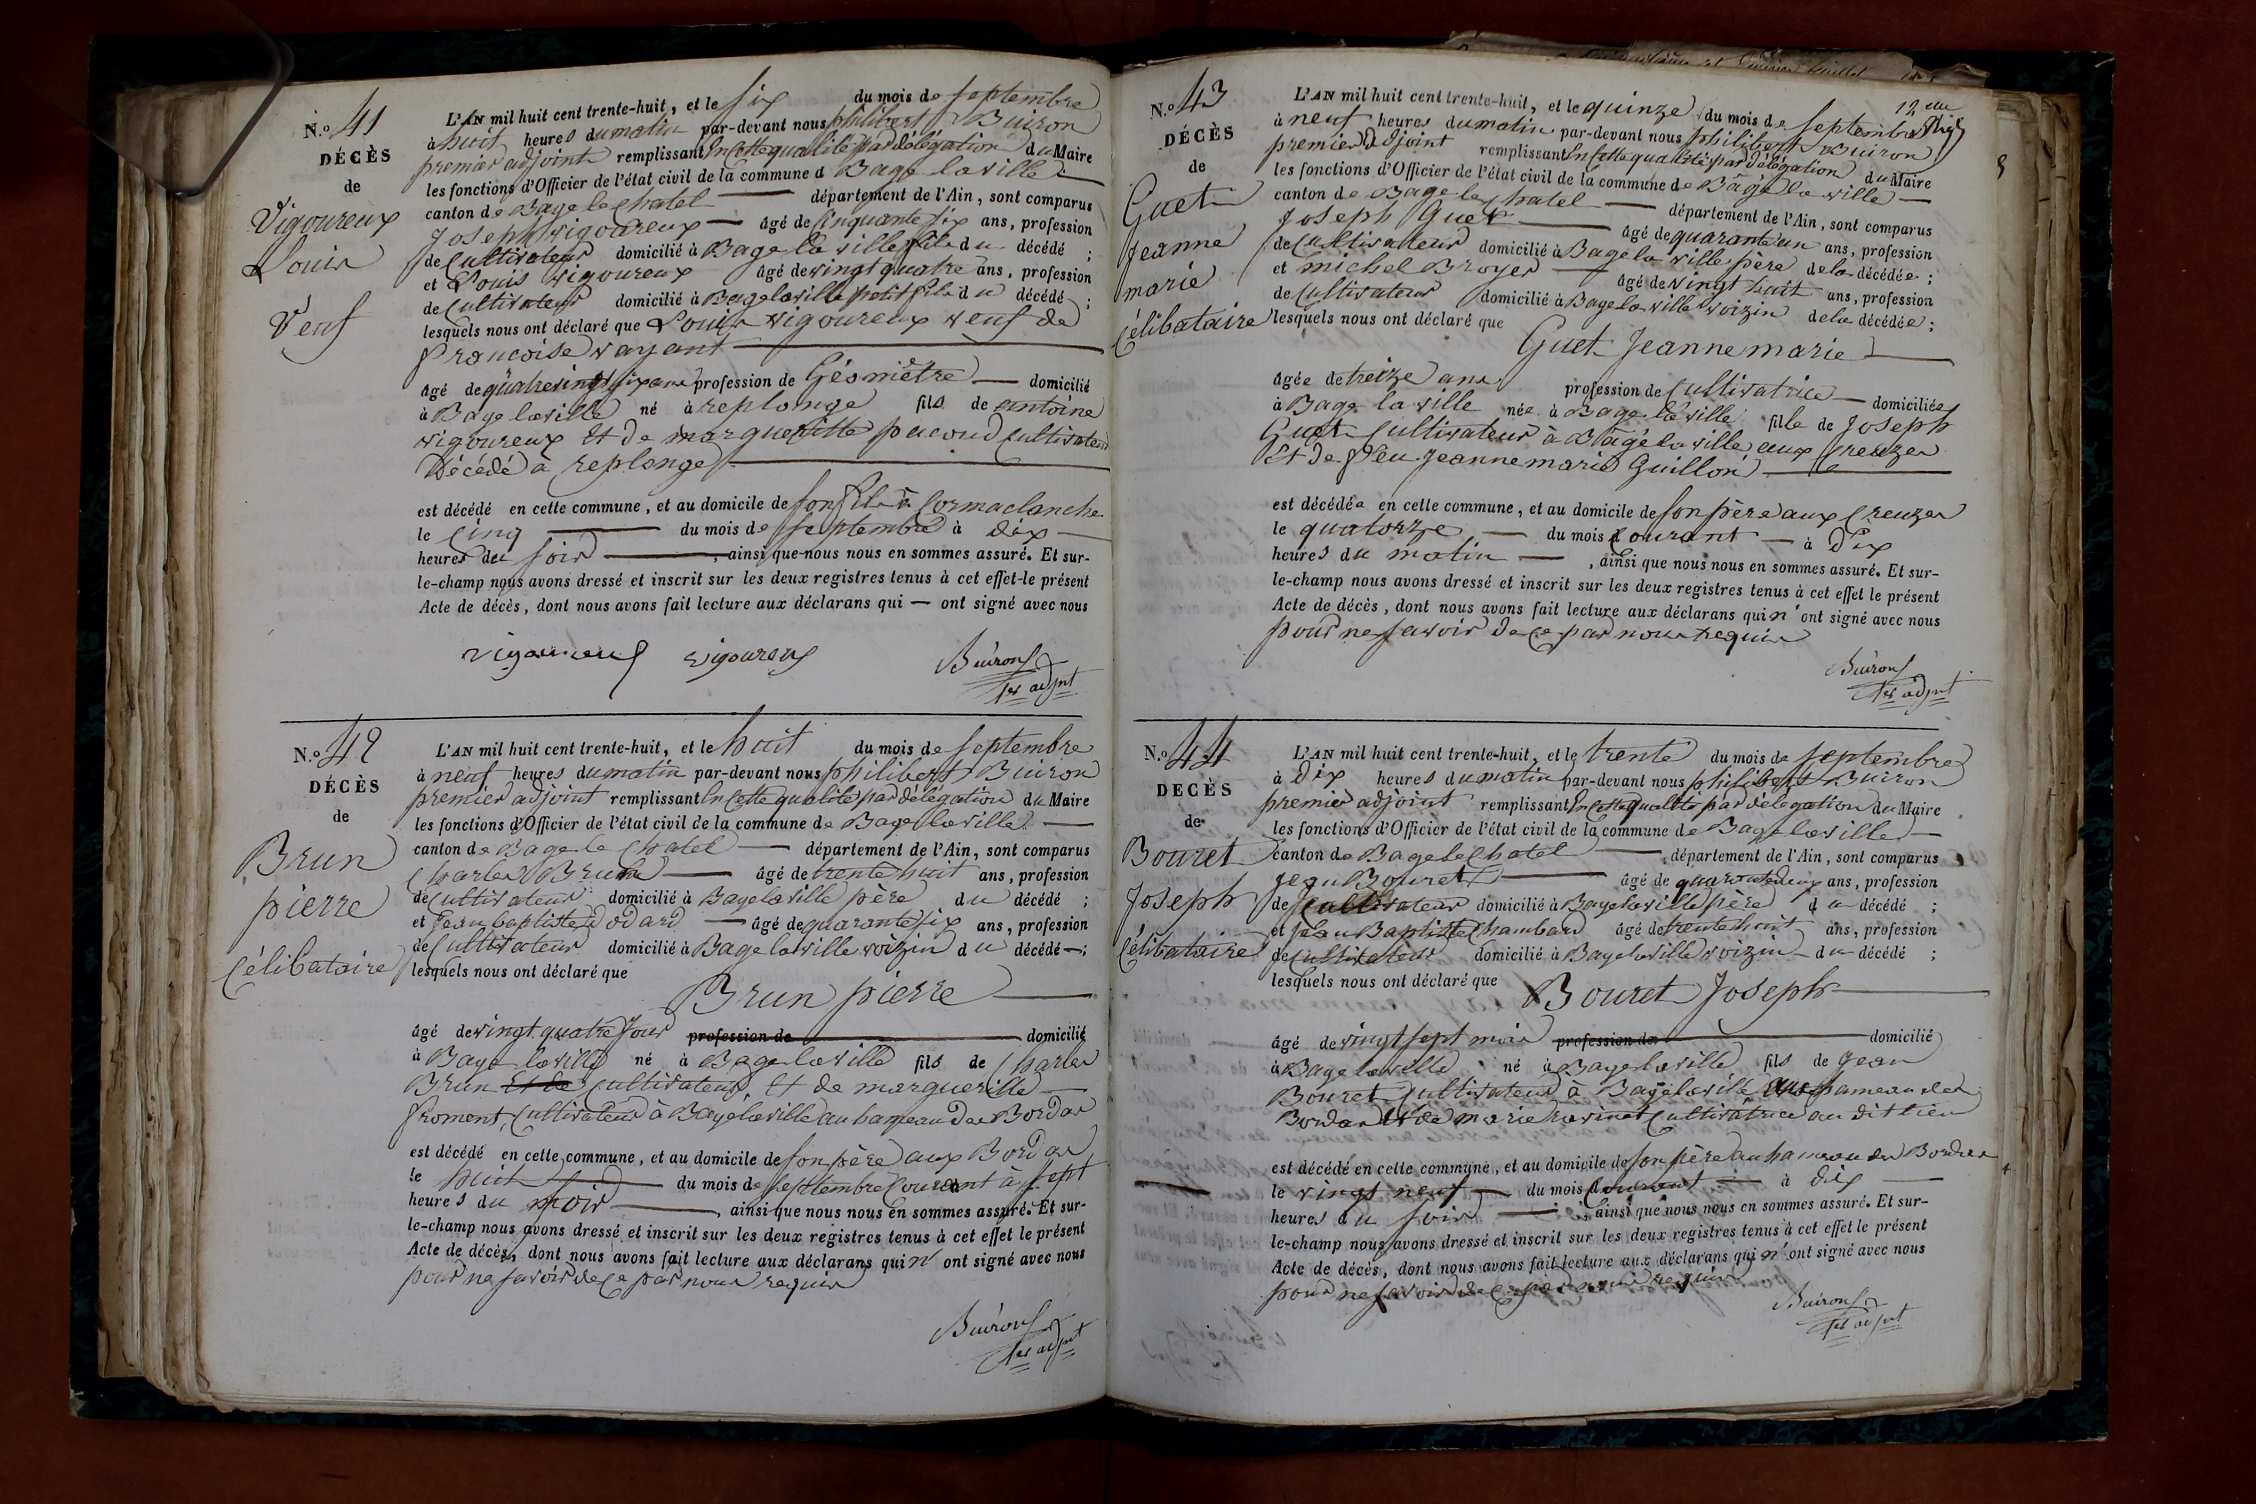 N.o 41
DÉCÈS
de
Vigoureux
Louis
Veuf
L'AN mil huit cent trente-huit, et le six du mois de septembre
à huit heures du matin par-devant nous philibert Buiron
premier adjoint remplissant en cette qualité par délégation du Maire
les fonctions d'Officier de l'état civil de la commune d Bage la ville
canton de Bage le Chatel département de l'Ain, sont comparus
Joseph Vigoureux âgé de Cinquante six ans, profession
de Cultivateur domicilié à Bage la ville fils du décédé ;
et Louis Vigoureux âgé de vingt quatre ans, profession
de Cultivateur domicilié à Bage la ville petit fils du décédé ;
lesquels nous ont déclaré que Louis Vigoureux veuf de
francoise vayant
âgé de quatre vingt six ans profession de Géomètre domicilié
à Bage la ville né à replonge fils de antoine
vigoureux Et de margueritte pacoud Cultivateur
Décédé à replonge
est décédé en cette commune, et au domicile de son fils à Cormaclanche
le Cinq du mois de septembre à dix
heures du soir, ainsi que nous nous en sommes assuré. Et sur-
le-champ nous avons dressé et inscrit sur les deux registres tenus à cet effet le présent
Acte de décès, dont nous avons fait lecture aux déclarans qui ont signé avec nous
vigoureux vigoureux Buiron
1er adjnt
N.o 42
DÉCÈS
de
Brun
pierre
Célibataire
L'AN mil huit cent trente-huit, et le huit du mois de septembre
à neuf heures du matin par-devant nous philibert Buiron
premier adjoint remplissant En cette qualité par délégation du Maire
les fonctions d'Officier de l'état civil de la commune de Bage la ville
canton de Bage le Chatel département de l'Ain, sont comparus
Charles Brun âgé de trente huit ans, profession
de Cultivateur domicilié à Bage la ville père du décédé ;
et Jean baptiste odard âgé de quarante six ans, profession
de Cultivateur domicilié à Bage la ville voizin du décédé ;
lesquels nous ont déclaré que
Brun pierre
âgé de vingt quatre Jours profession de domicilié
à Bage la ville né à Bage la ville fils de Charles
Brun Et de Cultivateur Et de marguerille
froment, Cultivateur à Bage la ville au hameau des Bordes
est décédé en cette commune, et au domicile de son père aux Bordes
le huit du mois de septembre Courant à sept
heures du soir, ainsi que nous nous en sommes assuré. Et sur-
le-champ nous avons dressé et inscrit sur les deux registres tenus à cet effet le présent
Acte de décès, dont nous avons fait lecture aux déclarans qui n'ont signé avec nous
pour ne savoir de Ce par nous requis
Buiron
1er adjnt
N.o 43
DÉCÈS
de
Guet
Jeanne
marie
Célibataire
L'AN mil huit cent trente-huit, et le quinze du mois de septembre
à neuf heures du matin par-devant nous philibert Buiron
premier adjoint remplissant En cette qualité par délégation du Maire
les fonctions d'Officier de l'état civil de la commune de Bâgé la ville
canton de Bage le Chatel département de l'Ain, sont comparus
Joseph Guet âgé de quarante un ans, profession
de Cultivateur domicilié à Bage la ville père de la décédée ;
et michel Broyer âgé de vingt huit ans, profession
de Cultivateur domicilié à Bage la ville voizin de la décédée ;
lesquels nous ont déclaré que
Guet Jeanne marie
âgée de treize ans profession de Cultivatrice domiciliée
à Bage la ville née à Bage la ville fille de Joseph
Guet Cultivateur à Bâgé la ville aux Creuzes
Et de feu Jeanne marie Guillon
est décédée en cette commune, et au domicile de son père aux Creuzes
le quatorze du mois Courant à Dix
heures du matin, ainsi que nous nous en sommes assuré. Et sur-
le-champ nous avons dressé et inscrit sur les deux registres tenus à cet effet le présent
Acte de décès, dont nous avons fait lecture aux déclarans qui n'ont signé avec nous
pour ne savoir de Ce par nous requis
Buiron
1er adjnt
N.o 44
DÉCÈS
de
Bouret
Joseph
Célibataire
L'AN mil huit cent trente-huit, et le trente du mois de septembre
à Dix heures du matin par-devant nous philibert Buiron
premier adjoint remplissant En cette qualité par délégation du Maire
les fonctions d'Officier de l'état civil de la commune de Bage la ville
canton de Bage le Chatel département de l'Ain, sont comparus
Jean Bouret âgé de quarante deux ans, profession
de Cultivateur domicilié à Bage la ville père du décédé ;
et Jean Baptiste Chambard âgé de trente huit ans, profession
de Cultivateur domicilié à Bage la ville voizin du décédé ;
lesquels nous ont déclaré que
Bouret Joseph
âgé de vingt sept mois profession de domicilié
à Bage la ville né à Bage la ville fils de Jean
Bouret Cultivateur à Bage la ville hameau des
Bordes Et de marie ravinet Cultivatrice au dit lieu
est décédé en cette commune, et au domicile de son père au hameau des Bordes
le vingt neuf du mois Courant à dix
heures du soir, ainsi que nous nous en sommes assuré. Et sur-
le-champ nous avons dressé et inscrit sur les deux registres tenus à cet effet le présent
Acte de décès, dont nous avons fait lecture aux déclarans qui n'ont signé avec nous
pour ne savoir de Ce par nous requis
Buiron
1er adjnt